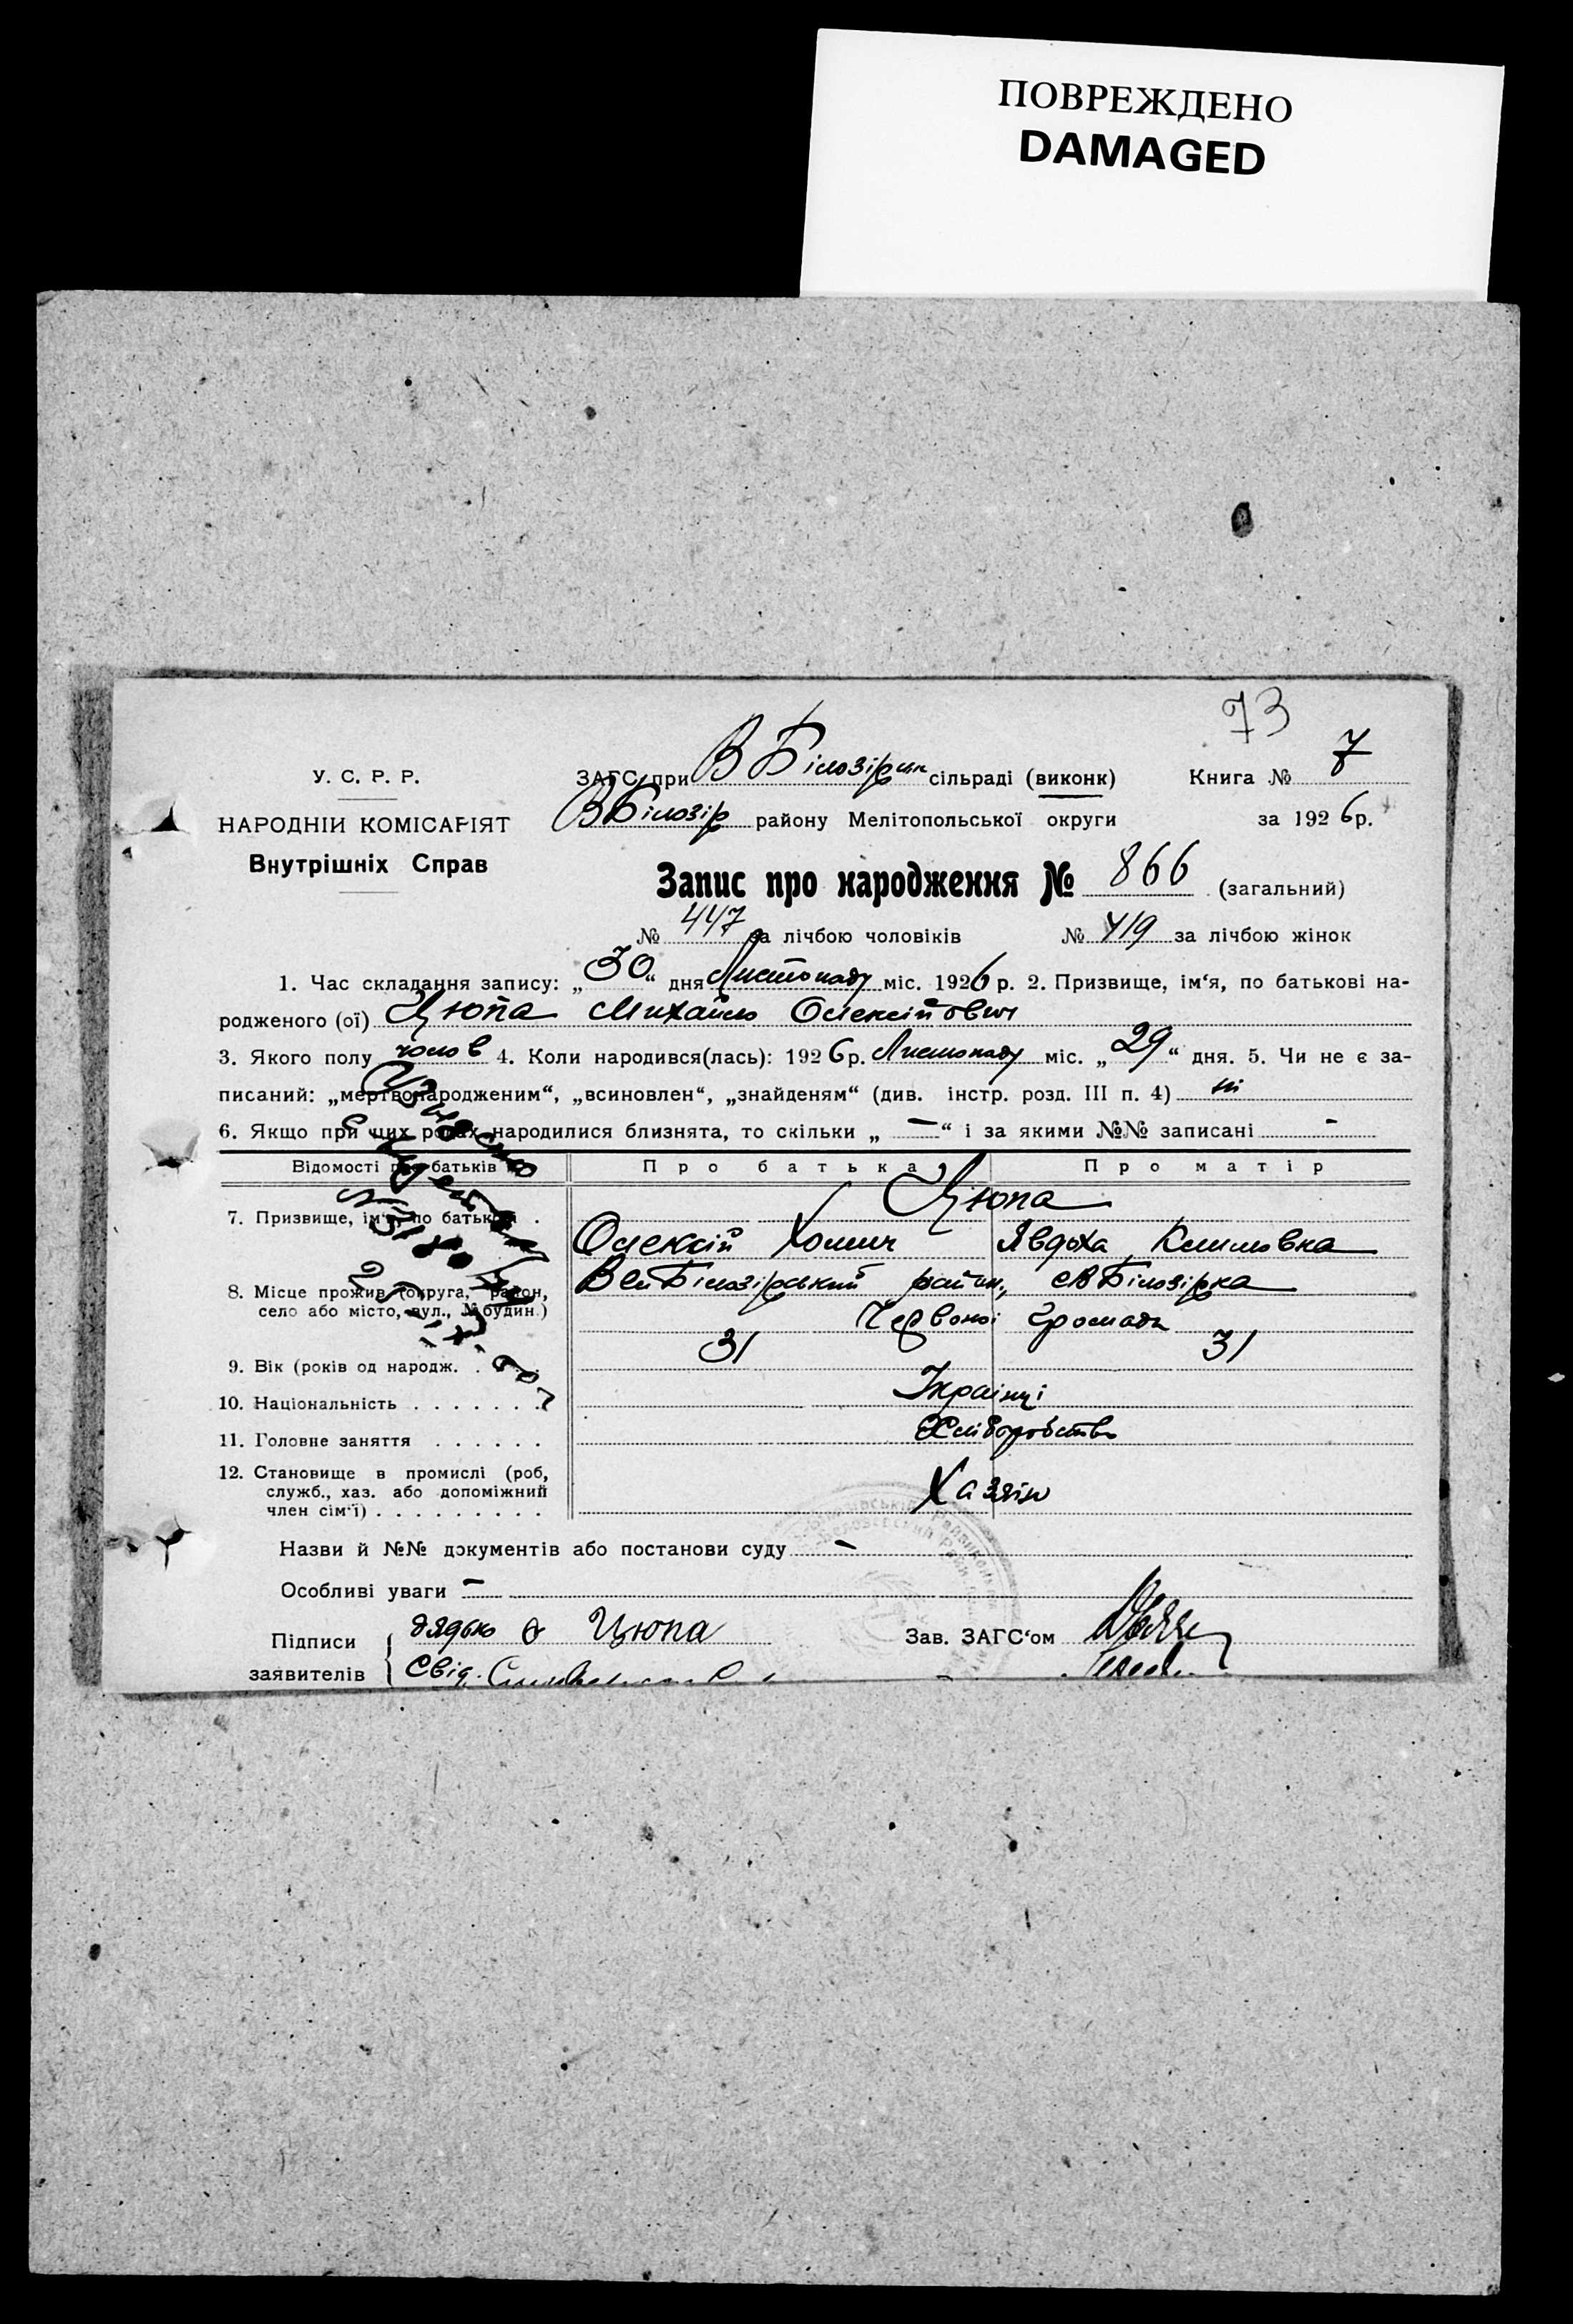 ПОВРЕЖДЕНО
DAMAGED
73
У. С. Р. Р.
ЗАГС при В Білозірськ сільраді (виконк) Книга № 7
НАРОДНІЙ КОМІСАРІЯТ
ВБілозір району Мелітопольської округи за 1926р.
Внутрішніх Справ
Запис про народження № 866 (загальний)
№ 447 за лічбою чоловіків № 419 за лічбою жінок
1. Час складання запису: „30“ дня Листопаду міс. 1926 р. 2. Призвище, ім‘я, по батькові на-
родженого (ої) Цюпа Михайло Олексійович
3. Якого полу чолов 4. Коли народився(лась): 1926 р. Листопаду міс. „29“ дня. 5. Чи не є за-
писаний: „мертвонародженим“, „всиновлен“, „знайденям“ (див. інстр. розд. III п. 4) ні
6. Якщо при цих родах народилися близнята, то скільки „ — “ і за якими №№ записані -
Відомості про батьків Про батька Про матір
Цюпа
7. Призвище, ім‘я, по батькові .
Олексій Хомич Явдоха Климовна
8. Місце прожив. (округа, район,
село або місто, вул., № будин.)
Вел Білозірський район, с В Білозірка
Червоної Громади
9. Вік (років од народж. . . . 31 31
10. Національність . . . . . . . Українці
11. Головне заняття . . . . . . Хліборобство
12. Становище в промислі (роб,
служб., хаз. або допоміжний
член сім‘ї) . . . . . . . . . Хазяїн
Назви й №№ документів або постанови суду -
Особливі уваги -
Підписи
заявителів
дядько Цюпа
Свід.
Зав. ЗАГС‘ом